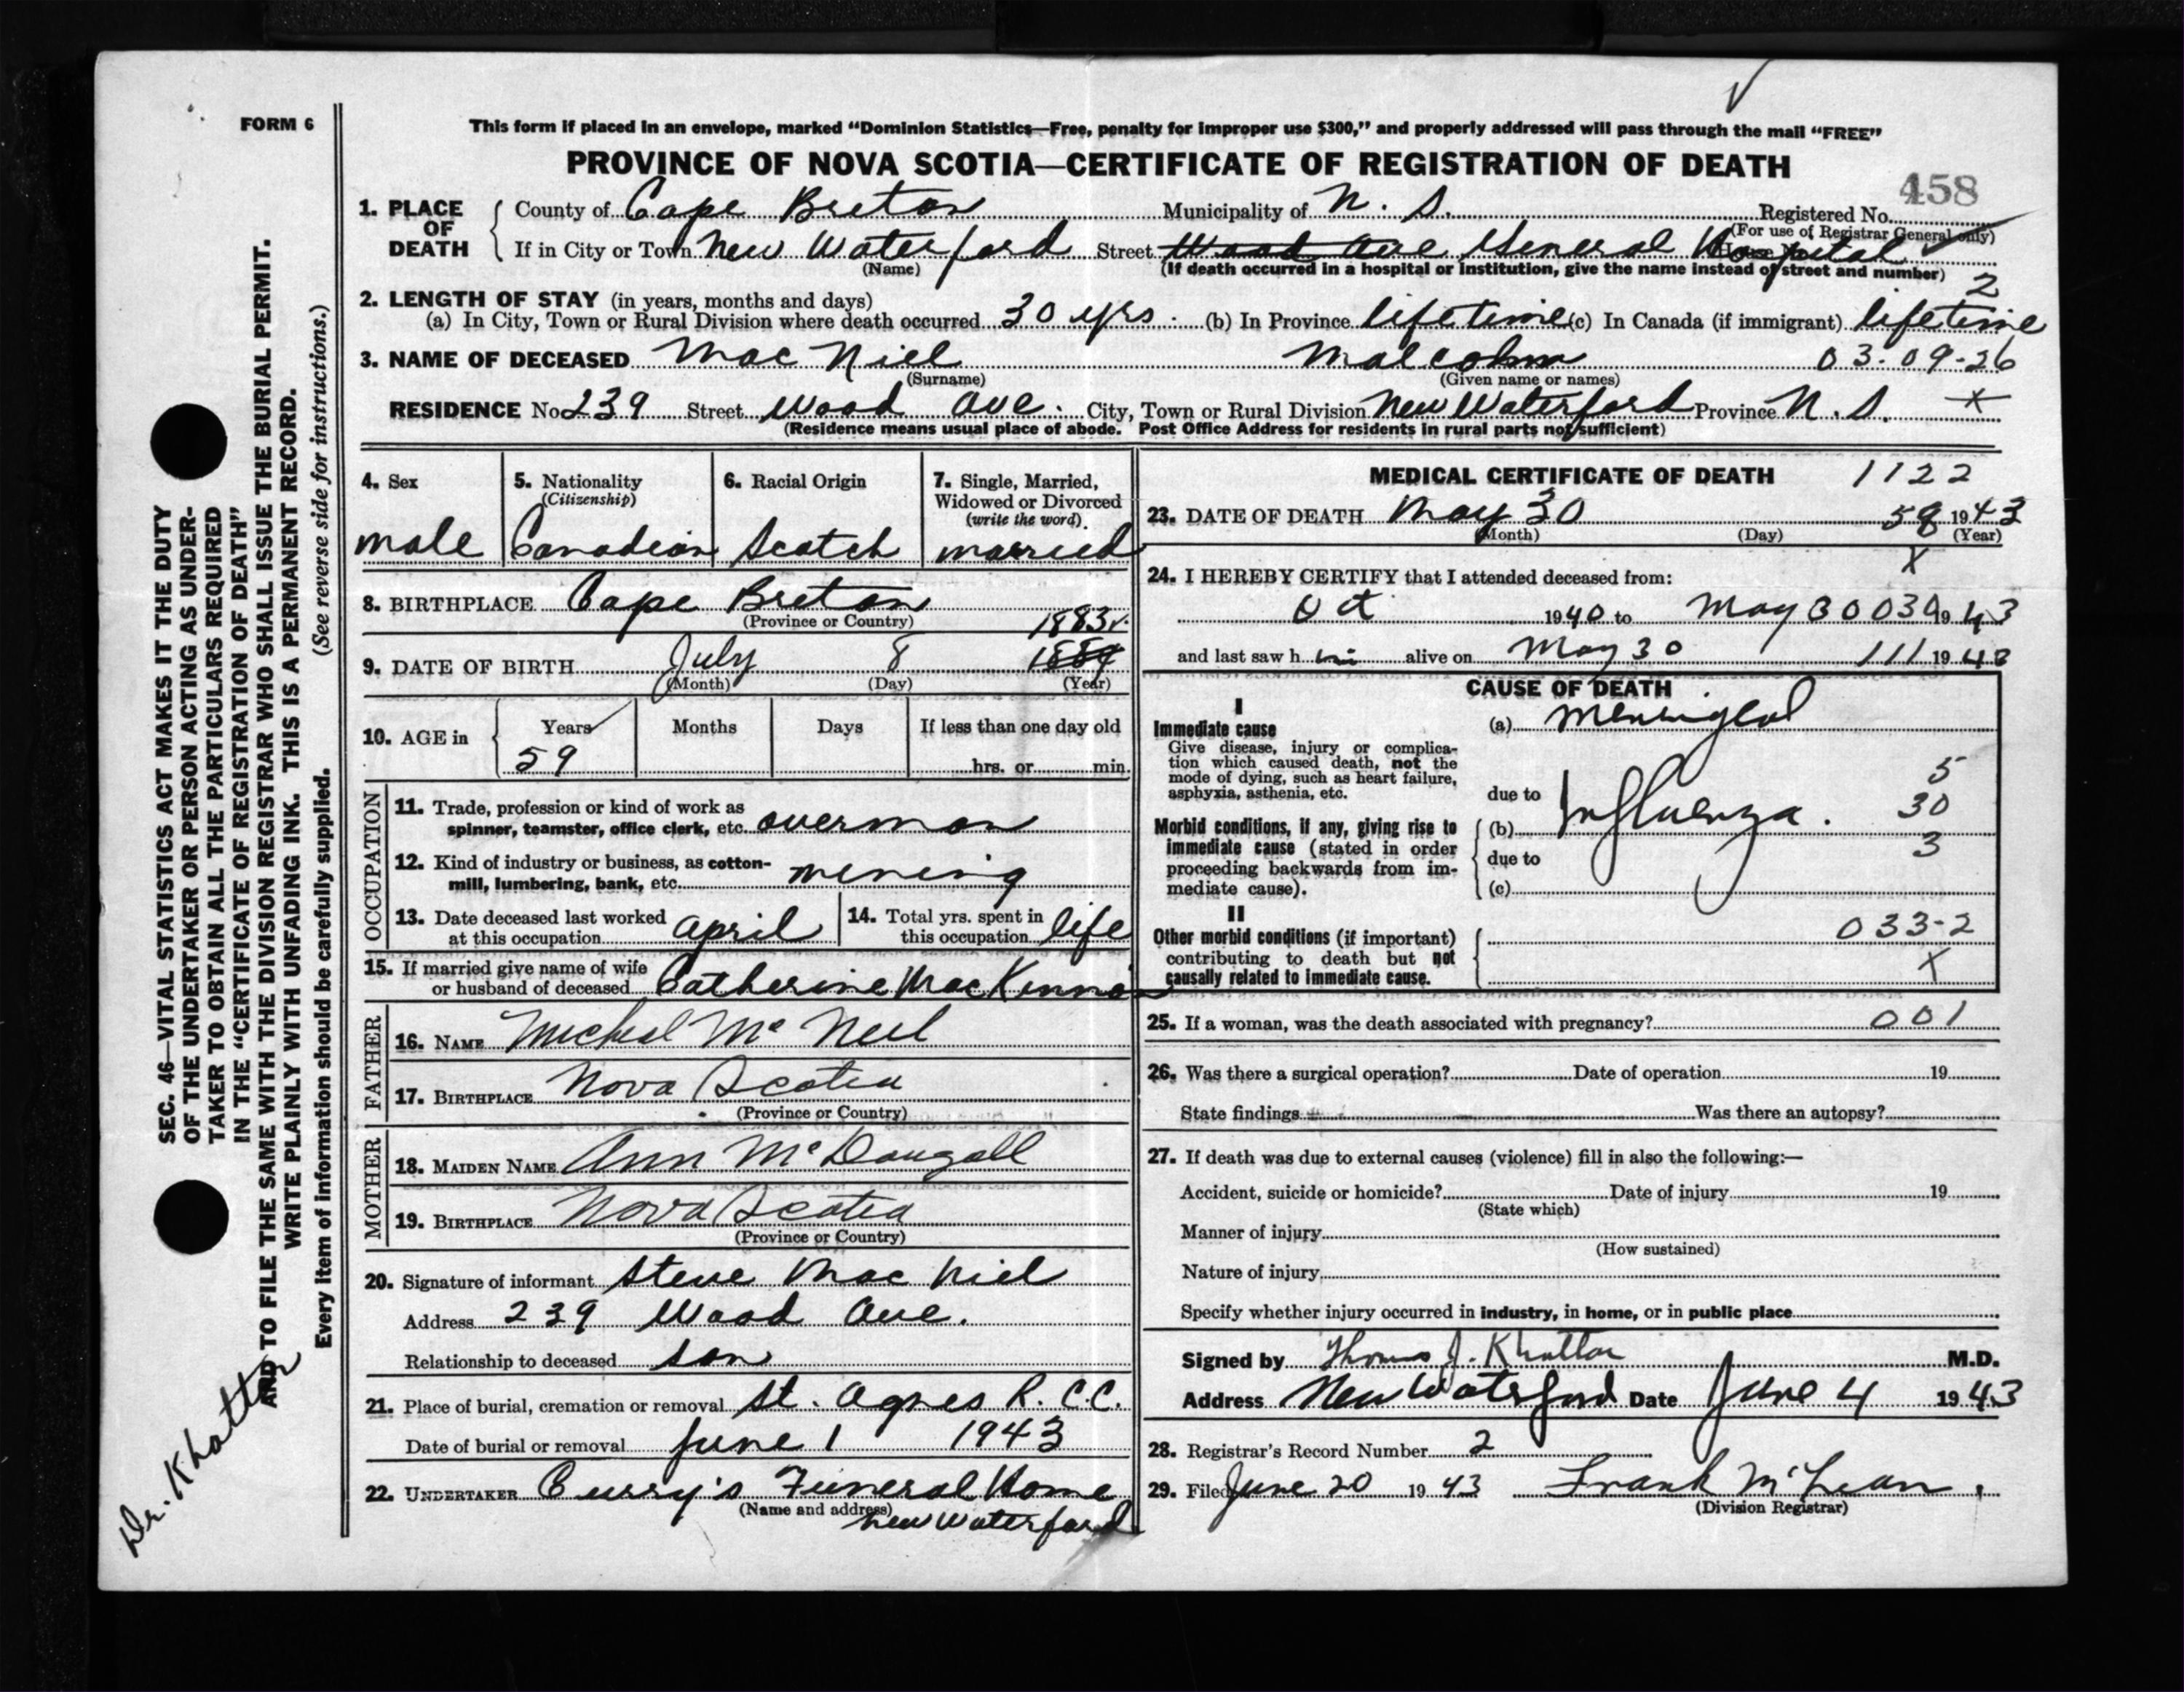 FORM 6
This form if placed in an envelope, marked "Dominion Statistics—Free, penalty for improper use $300," and properly addressed will pass through the mail "FREE"
PROVINCE OF NOVA SCOTIA—CERTIFICATE OF REGISTRATION OF DEATH
458
1. PLACE OF DEATH County of Cape Breton Municipality of N. S. Registered No.
(For use of Registrar General only)
If in City or Town New Waterford Street Wood Ave General Hospital
(Name) (If death occurred in a hospital or institution, give the name instead of street and number)
2
2. LENGTH OF STAY (in years, months and days)
(a) In City, Town or Rural Division where death occurred 30 yrs. (b) In Province lifetime (c) In Canada (if immigrant) lifetime
3. NAME OF DECEASED Mac Niel Malcolm 03-09-26
(Surname) (Given name or names)
RESIDENCE No. 239 Street Wood Ave. City, Town or Rural Division New Waterford Province N. S. X
(Residence means usual place of abode. Post Office Address for residents in rural parts not sufficient)
4. Sex male
5. Nationality (Citizenship) Canadian
6. Racial Origin Scotch
7. Single, Married, Widowed or Divorced (write the word) married
8. BIRTHPLACE Cape Breton
(Province or Country)
1883
9. DATE OF BIRTH July 8 1884
(Month) (Day) (Year)
10. AGE in Years 59 Months Days If less than one day old hrs. or min.
OCCUPATION
11. Trade, profession or kind of work as
spinner, teamster, office clerk, etc. overman
12. Kind of industry or business, as cotton-
mill, lumbering, bank, etc. mining
13. Date deceased last worked at this occupation April
14. Total yrs. spent in this occupation life
15. If married give name of wife
or husband of deceased Catherine MacKinnon
FATHER
16. NAME Micheal Mc Neil
17. BIRTHPLACE Nova Scotia
(Province or Country)
MOTHER
18. MAIDEN NAME Ann McDougall
19. BIRTHPLACE Nova Scotia
(Province or Country)
20. Signature of informant Steve Mac Niel
Address 239 Wood Ave.
Relationship to deceased son
21. Place of burial, cremation or removal St. Agnes R.C.C.
Date of burial or removal June 1 1943
22. UNDERTAKER Curry's Funeral Home
(Name and address)
New Waterford
MEDICAL CERTIFICATE OF DEATH 1122
23. DATE OF DEATH May 30 1943
(Month) (Day) (Year)
X
24. I HEREBY CERTIFY that I attended deceased from:
Oct 1940 to May 30 039 1943
and last saw h im alive on May 30 111 1943
CAUSE OF DEATH
I
Immediate cause (a) Meningeal
Give disease, injury or complica-
tion which caused death, not the
mode of dying, such as heart failure,
asphyxia, asthenia, etc.
due to
Morbid conditions, if any, giving rise to
immediate cause (stated in order
proceeding backwards from im-
mediate cause).
(b) Influenza.
due to
(c)
5
30
3
II
Other morbid conditions (if important)
contributing to death but not
causally related to immediate cause.
033-2
X
25. If a woman, was the death associated with pregnancy? 001
26. Was there a surgical operation? Date of operation 19
State findings Was there an autopsy?
27. If death was due to external causes (violence) fill in also the following:—
Accident, suicide or homicide? Date of injury 19
(State which)
Manner of injury
(How sustained)
Nature of injury
Specify whether injury occurred in industry, in home, or in public place
Signed by Thomas J. Khattar M.D.
Address New Waterford Date June 4 1943
28. Registrar's Record Number 2
29. Filed June 20 1943 Frank McLean.
(Division Registrar)
SEC. 46—VITAL STATISTICS ACT MAKES IT THE DUTY
OF THE UNDERTAKER OR PERSON ACTING AS UNDER-
TAKER TO OBTAIN ALL THE PARTICULARS REQUIRED
IN THE "CERTIFICATE OF REGISTRATION OF DEATH"
AND TO FILE THE SAME WITH THE DIVISION REGISTRAR WHO SHALL ISSUE THE BURIAL PERMIT.
WRITE PLAINLY WITH UNFADING INK. THIS IS A PERMANENT RECORD.
Every item of information should be carefully supplied. (See reverse side for instructions.)
Dr. Khattar